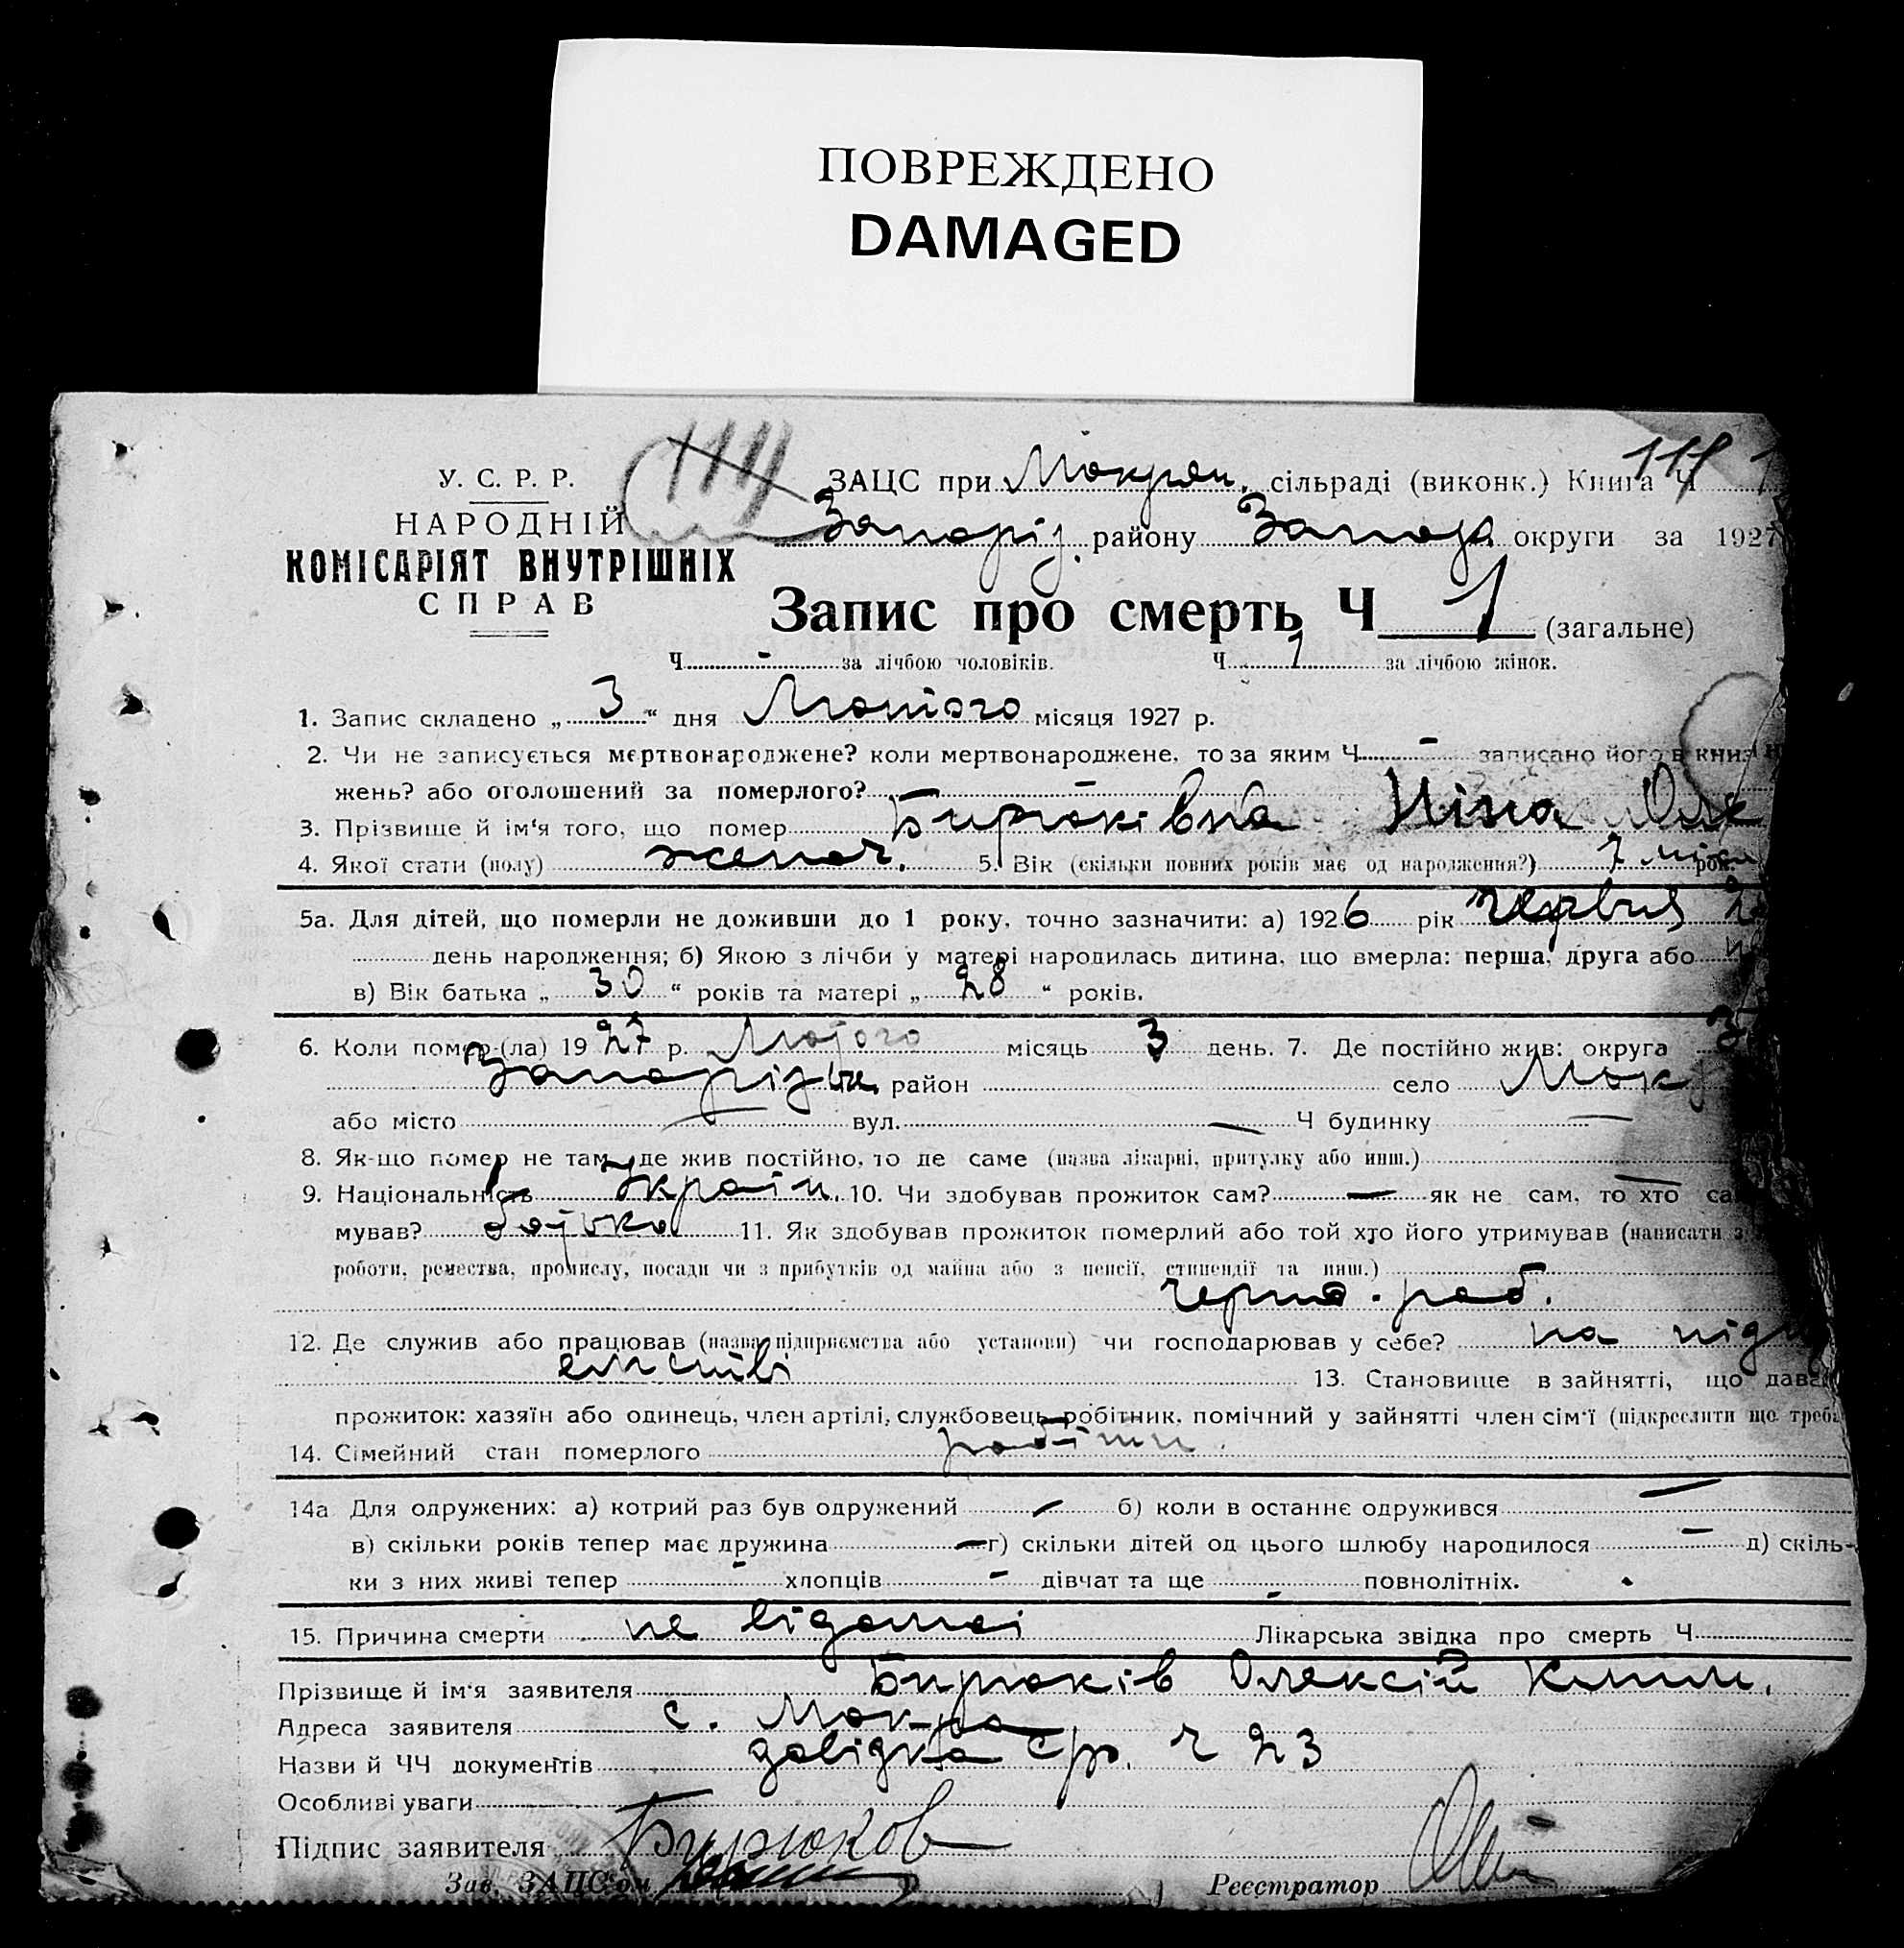 ПОВРЕЖДЕНО
DAMAGED
У. С. Р. Р.
НАРОДНІЙ
КОМІСАРІЯТ ВНУТРІШНІХ
СПРАВ
ЗАЦС при Мокрян. сільраді (виконк.) Книга Ч
Запоріз. району Запор. округи за 1927
Запис про смерть Ч 1 (загальне)
Ч - за лічбою чоловіків. Ч 1 за лічбою жінок.
1. Запис складено „3“ дня Лютого місяця 1927 р.
2. Чи не записується мертвонароджене? коли мертвонароджене, то за яким Ч - записано його в кни
жень? або оголошений за померлого? -
3. Прізвище й ім'я того, що помер Бирюківна Ніна Олек
4. Якої стати (полу) жіноч. 5. Вік (скільки повних років має од народження?) 7 міся рок.
5а. Для дітей, що померли не доживши до 1 року, точно зазначити: а) 1926 рік червня
день народження; б) Якою з лічби у матері народилась дитина, що вмерла: перша, друга або
в) Вік батька „30“ років та матері „28“ років.
6. Коли помер-(ла) 1927 р. Лютого місяць 3 день. 7. Де постійно жив: округа З
Запорізьк. район село Мокр
або місто — вул. — Ч будинку —
8. Як-що помер не там, де жив постійно, то де саме (назва лікарні, притулку або инш.)
9. Національність Україн. 10. Чи здобував прожиток сам? — як не сам, то хто
мував? батько 11. Як здобував прожиток померлий або той хто його утримував (написати з
роботи, ремества, промислу, посади чи з прибутків од майна або з пенсії, стипендії та инш.)
черно-роб.
12. Де служив або працював (назва підприємства або установи) чи господарював у себе? на підпр
ємстві 13. Становище в зайнятті, що дава
прожиток: хазяїн або одинець, член артілі, службовець, робітник, помічний у зайнятті член сім'ї (підкреслити що треба
14. Сімейний стан померлого робітн.
14а Для одружених: а) котрий раз був одружений — б) коли в останнє одружився —
в) скільки років тепер має дружина — г) скільки дітей од цього шлюбу народилося — д) скіль-
ки з них живі тепер - хлопців - дівчат та ще - повнолітніх.
15. Причина смерти не відомої Лікарська звідка про смерть Ч
Прізвище й ім'я заявителя Бирюків Олексій Клим.
Адреса заявителя с. Мокра
Назви й ЧЧ документів довідка с/р. ч 23
Особливі уваги
Підпис заявителя Бирюков
Зав. ЗАЦС'ом Реєстратор